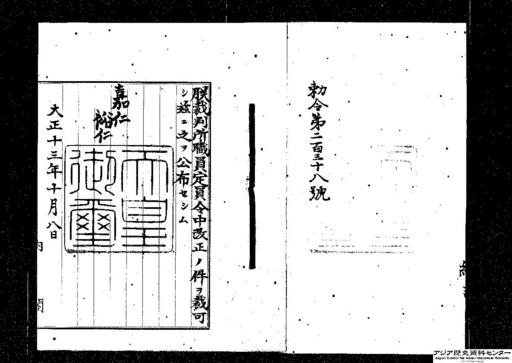 勅令第二百三十八號
朕裁判所職員定員令中改正ノ件ヲ裁可
シ茲ニ之ヲ公布セシム
嘉仁
裕仁
天皇
御璽
大正十三年十月八日
内閣
アジア歴史資料センター
Japan Center for Asian Historical Records